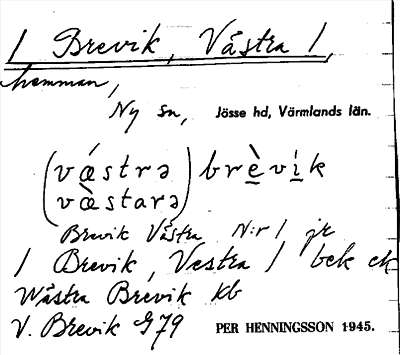 / Brevik, Västra /,
hemman,
Ny sn, Jösse hd, Värmlands län.
(vǽstrə) brè̱ví̱k
(væ̀starə)
Brevik Västra N:r 1 jr
/ Brevik, Vestra / bek ek
Wästra Brevik kb
V. Brevik G79 PER HENNINGSSON 1945.